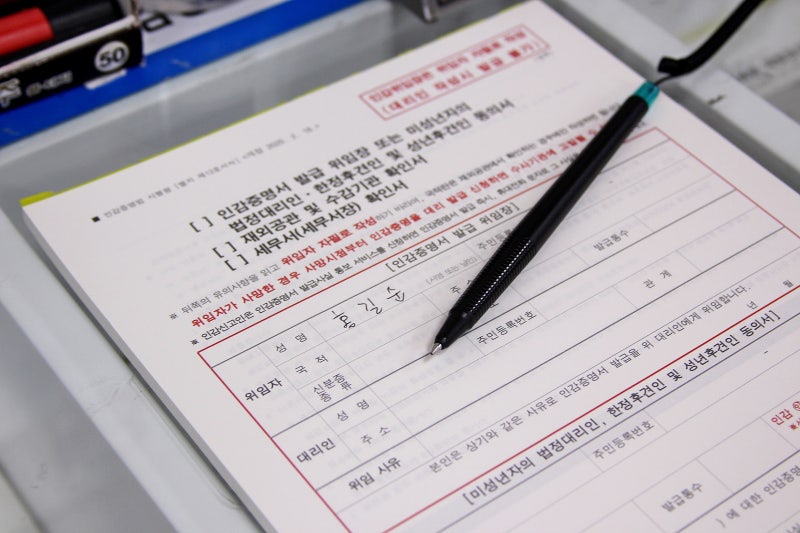 50
인감위임장은 위임자 자필로 작성
(대리인 작성시 발급 불가)
■ 인감증명법 시행령 [별지 제13호서식] <개정
[ ] 인감증명서 발급 위임장 또는 미성년자의
법정대리인ㆍ한정후견인 및 성년후견인 동의서
[ ] 재외공관 및 수감기관 확인서
[ ] 세무서(세무서장) 확인서
※ 뒤쪽의 유의사항을 읽고 위임자 자필로 작성하기 바라며,
위임자가 사망한 경우 사망시점부터 인감증명을 대리 발급 신청하면 수사기관에 고발될 수
※ 인감신고인은 인감증명서 발급사실 통보 서비스를 신청하면 인감증명서 발급 즉시,
[인감증명서 발급 위임장]
위임자
성 명
홍길순
(서명 또는 날인)
주민등록
발급통수
국 적
주소
신분증
종류
대리인
성 명
주민등록번호
관 계
주 소
위임 사유
본인은 상기와 같은 사유로 인감증명서 발급을 위 대리인에게 위임합니다.
년 월
[미성년자의 법정대리인, 한정후견인 및 성년후견인 동의서]
주민등록번호
인감
발급통수
) 에 대한 인감증명